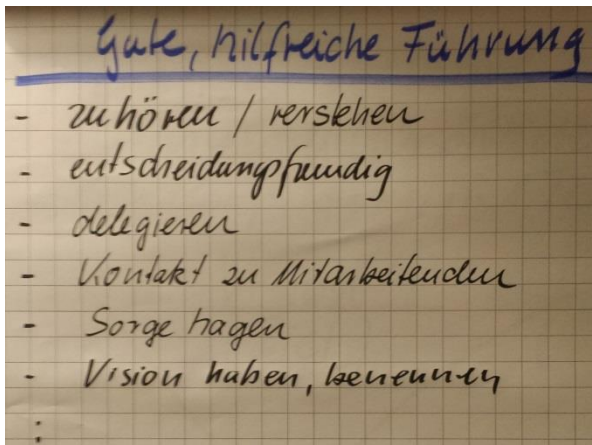 Gute, hilfreiche Führung
- zuhören / verstehen
- entscheidungsfreudig
- delegieren
- Kontakt zu Mitarbeitenden
- Sorge tragen
- Vision haben, benennen
: